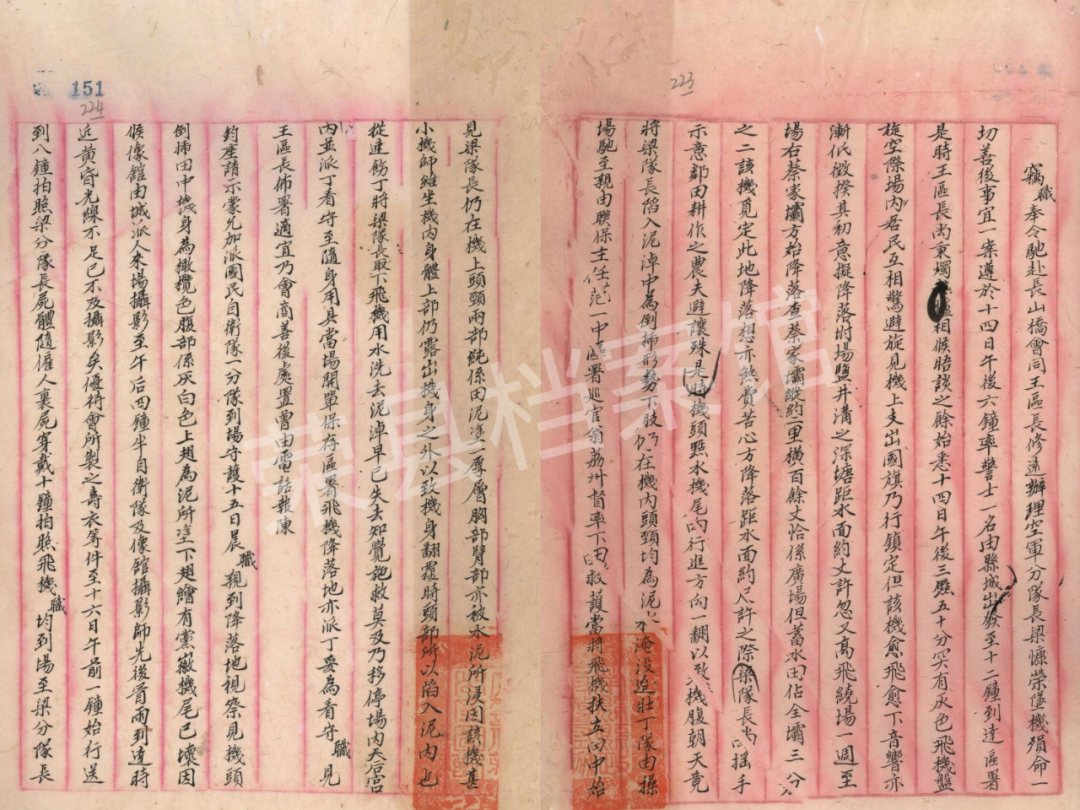 223
竊職奉令馳赴長山橋會同王區長修遠辦理空軍分隊長梁慷榮墮機殞命一
切善後事宜一案遵於十四日午後六鐘率警士一名由縣城出發至十二鐘到達區署
是時王區長尚秉燭相候晤談之餘始悉十四日午後三點五十分突有灰色飛機盤
旋空際場內居民互相驚避旋見機上支出國旗乃行鎮定但該機愈飛愈下音響亦
漸低微揆其初意擬降落坿場鹽井溝之深塘距水面約丈許忽又高飛繞場一週至
場右蔡家壩方始降落查蔡家壩蹤約一里橫百餘丈恰係廣場但蓄水田佔全壩三分
之二該機覓定此地降落想亦煞費苦心方降落距水面約尺許之際梁隊長尚搖手
示意鄰田耕作之農夫避讓殊是時機頭點水機尾向行進方向一翻以致機腹朝天竟
將梁隊長陷入泥淖中為倒揷形勢下肢仍在機內頭頸均為泥水淹沒迨壯丁隊由操
場馳至親由聯保主任范一中區署巡官翁荔州督率下田救護當將飛機扶立田中始
151
224
見梁隊長仍在機上頭頸兩部純係田泥塗一厚層胸部臂部亦被水泥所浸因該機甚
小機師雖坐機內身體上部仍露出機身之外以致機身翻覆時頭部所以陷入泥內也
從速飭丁將梁隊長取下飛機用水洗去泥淖早已失去知覺施救莫及乃移停場內天后宮
內並派丁看守至隨身用具當場開單保存區署飛機降落地亦派丁妥為看守職見
王區長佈署適宜乃會商善後處置曾由電話報陳
鈞座請示蒙允加派國民自衛隊一分隊到場守護十五日晨職親到降落地視察見機頭
倒揷田中機身為橄欖色腹部係灰白色上翅為泥所塗下翅繪有黨徽機尾已壞因
候像館由城派人來場攝影至午后四鐘半自衛隊及像館攝影師先後冒雨到達時
近黃昏光線不足已不及攝影矣優待會所製之壽衣等件至十六日午前一鐘始行送
到八鐘拍照梁分隊長屍體隨僱人裹屍穿戴十鐘拍照飛機職均到場至梁分隊長
荣县档案馆